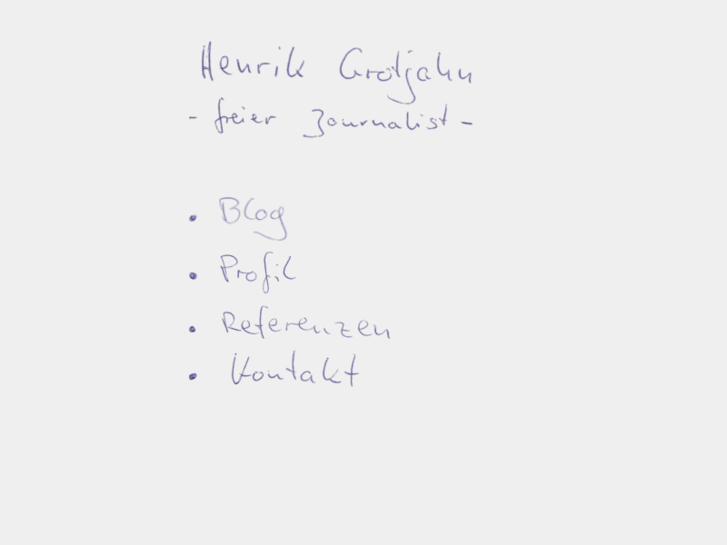 Henrik Grotjahn
- freier Journalist -
• Blog
• Profil
• Referenzen
• Kontakt